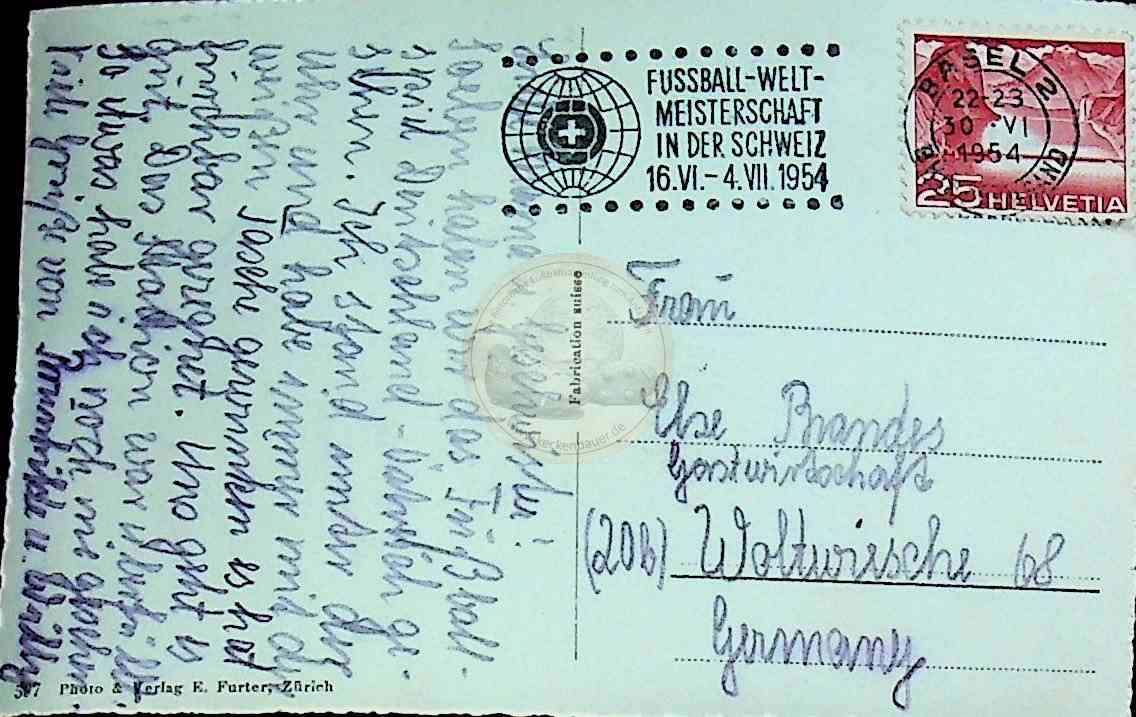 FUSSBALL-WELT-
MEISTERSCHAFT
IN DER SCHWEIZ
16.VI.-4.VII.1954
BASEL 2
22-23
30 VI
1954
25 HELVETIA
Frau
Else Brandes
Gastwirtschaft
(20b) Woltwiesche 68
Germany
Fabrication suisse
beckenbauer.de
Geschwister!
haben wir das Fußball-
spiel Deutschland
sehen. Ich stand unter der
Uhr und habe immer mit
Tasche gewunken es hat
furchtbar geregnet. Uns geht es
gut. Das Stadion war überfüllt.
So etwas habe ich noch nie gesehen.
Viele von u. Willy
597 Photo & Verlag E. Furter, Zürich